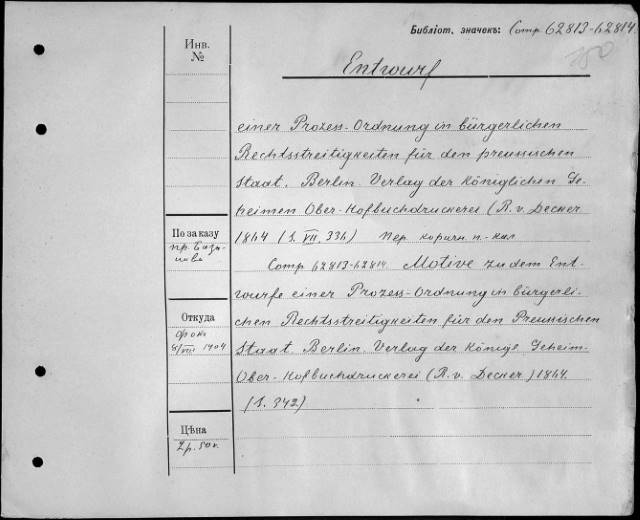 Библіот. значекъ: Comp 62813-62814.
150
Инв.
№
Entwurf
einer Prozess-Ordnung in bürgerlichen
Rechtsstreitigkeiten für den preussischen
Staat. Berlin. Verlag der königlichen Ge-
heimen Ober-Hofbuchdruckerei (R. v. Decker
1864 (S. VII, 336)
Comp 62813-62814. Motive zu dem Ent-
wurfe einer Prozess-Ordnung in bürgerli-
chen Rechtsstreitigkeiten für den Preussischen
Staat. Berlin. Verlag der Königl. Geheim-
Ober-Hofbuchdruckerei (R. v. Decker) 1864.
(S. 342)
По заказу
Откуда
8/VIII 1904
Цѣна
2 р. 50 к.